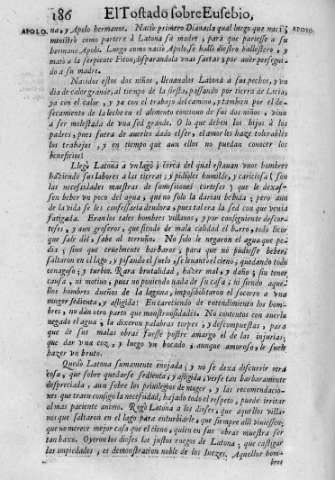 186 El Tostado sobre Eusebio,
APOLO. na, y Apolo hermanos. Nacio primero Diana, la qual luego que nacio APOLO.
ministrò como partera à Latona su madre, para que pariesse a su
hermano Apolo. Luego como nacio Apolo, se hallò diestro ballestero, y
matò a la serpiente Fiton, disparandola unas saetas, por auer persegui-
do a su madre.
Nacidos estos dos niños, lleuaualos Latona à sus pechos, y un
dia de calor grande, al tiempo de la siesta, passando por tierra de Licia,
ya con el calor, y ya con el trabajo del camino, y tambien por el de-
secamiento de la leche en el alimento continuo de sus dos niños, vino
a ser molestada de una sed grande. O lo que deben los hijos à los
padres, pues fuera de auerles dado el ser, el amor les haze tolerables
los trabajos, y en tiempo que aun ellos no puedan conocer los
beneficios!
Llegò Latona a un lago, cerca del qual estauan unos hombres
haziendo sus labores a las tierras; y pidioles humilde, y cariciosa (son
las necesidades maestras de sumissiones corteses) que le dexas-
sen beber un poco del agua, que no solo la darian bebida; pero aun
de la vida se les confessaria deudora, pues tal era la sed con que venia
fatigada. Eran los tales hombres villanos, y por consiguiente descor-
teses, y aun groseros, que siendo de mala calidad el barro, todo licor
que sale dèl, sabe al terruño. No solo le negaron el agua que pe-
dia; sino que cruelmente barbaros, para que no pudiesse beber
saltaron en el lago, y pisando el suelo, se leuantò el cieno, quedando todo
cenagoso, y turbio. Rara brutalidad, hazer mal, y daño, sin tener
causa, ni motiuo, pues no poniendo nada de su casa, ni siendo aque-
llos hombres dueños de la laguna, impossibilitaron el socorro a una
muger sedienta, y afligida! En careciendo de entendimiento los hom-
bres, no dàn otro parto que monstruosidades. No contentos con auerla
negado el agua, la dixeron palabras torpes, y descompuestas, para
que de sus malas obras fuesse postre amargo el de las injurias;
que dar una coz, y luego un bocado, aunque amoroso, le suele
hazer un bruto.
Quedò Latona sumamente enojada; y no se dexa discurrir otra
cosa, que sobre quedarse sedienta, y afligida, verse tan barbaramente
despreciada, aun sobre los priuilegios de muger, y las recomendacio-
nes que traìa consigo la necesidad, baxado todo el respeto, puede irritar
al mas paciente animo. Rogò Latona a los dioses, que aquellos villa-
nos que saltaron en el lago para enturbiarle, que siempre alli viuiessen;
que no merecia mas casa que el cieno, quien en sus obras muestra ser
tan baxo. Oyeron los dioses los justos ruegos de Latona; que castigar
las impiedades, es demonstracion noble de los Juezes. Aquellos hom-
bres